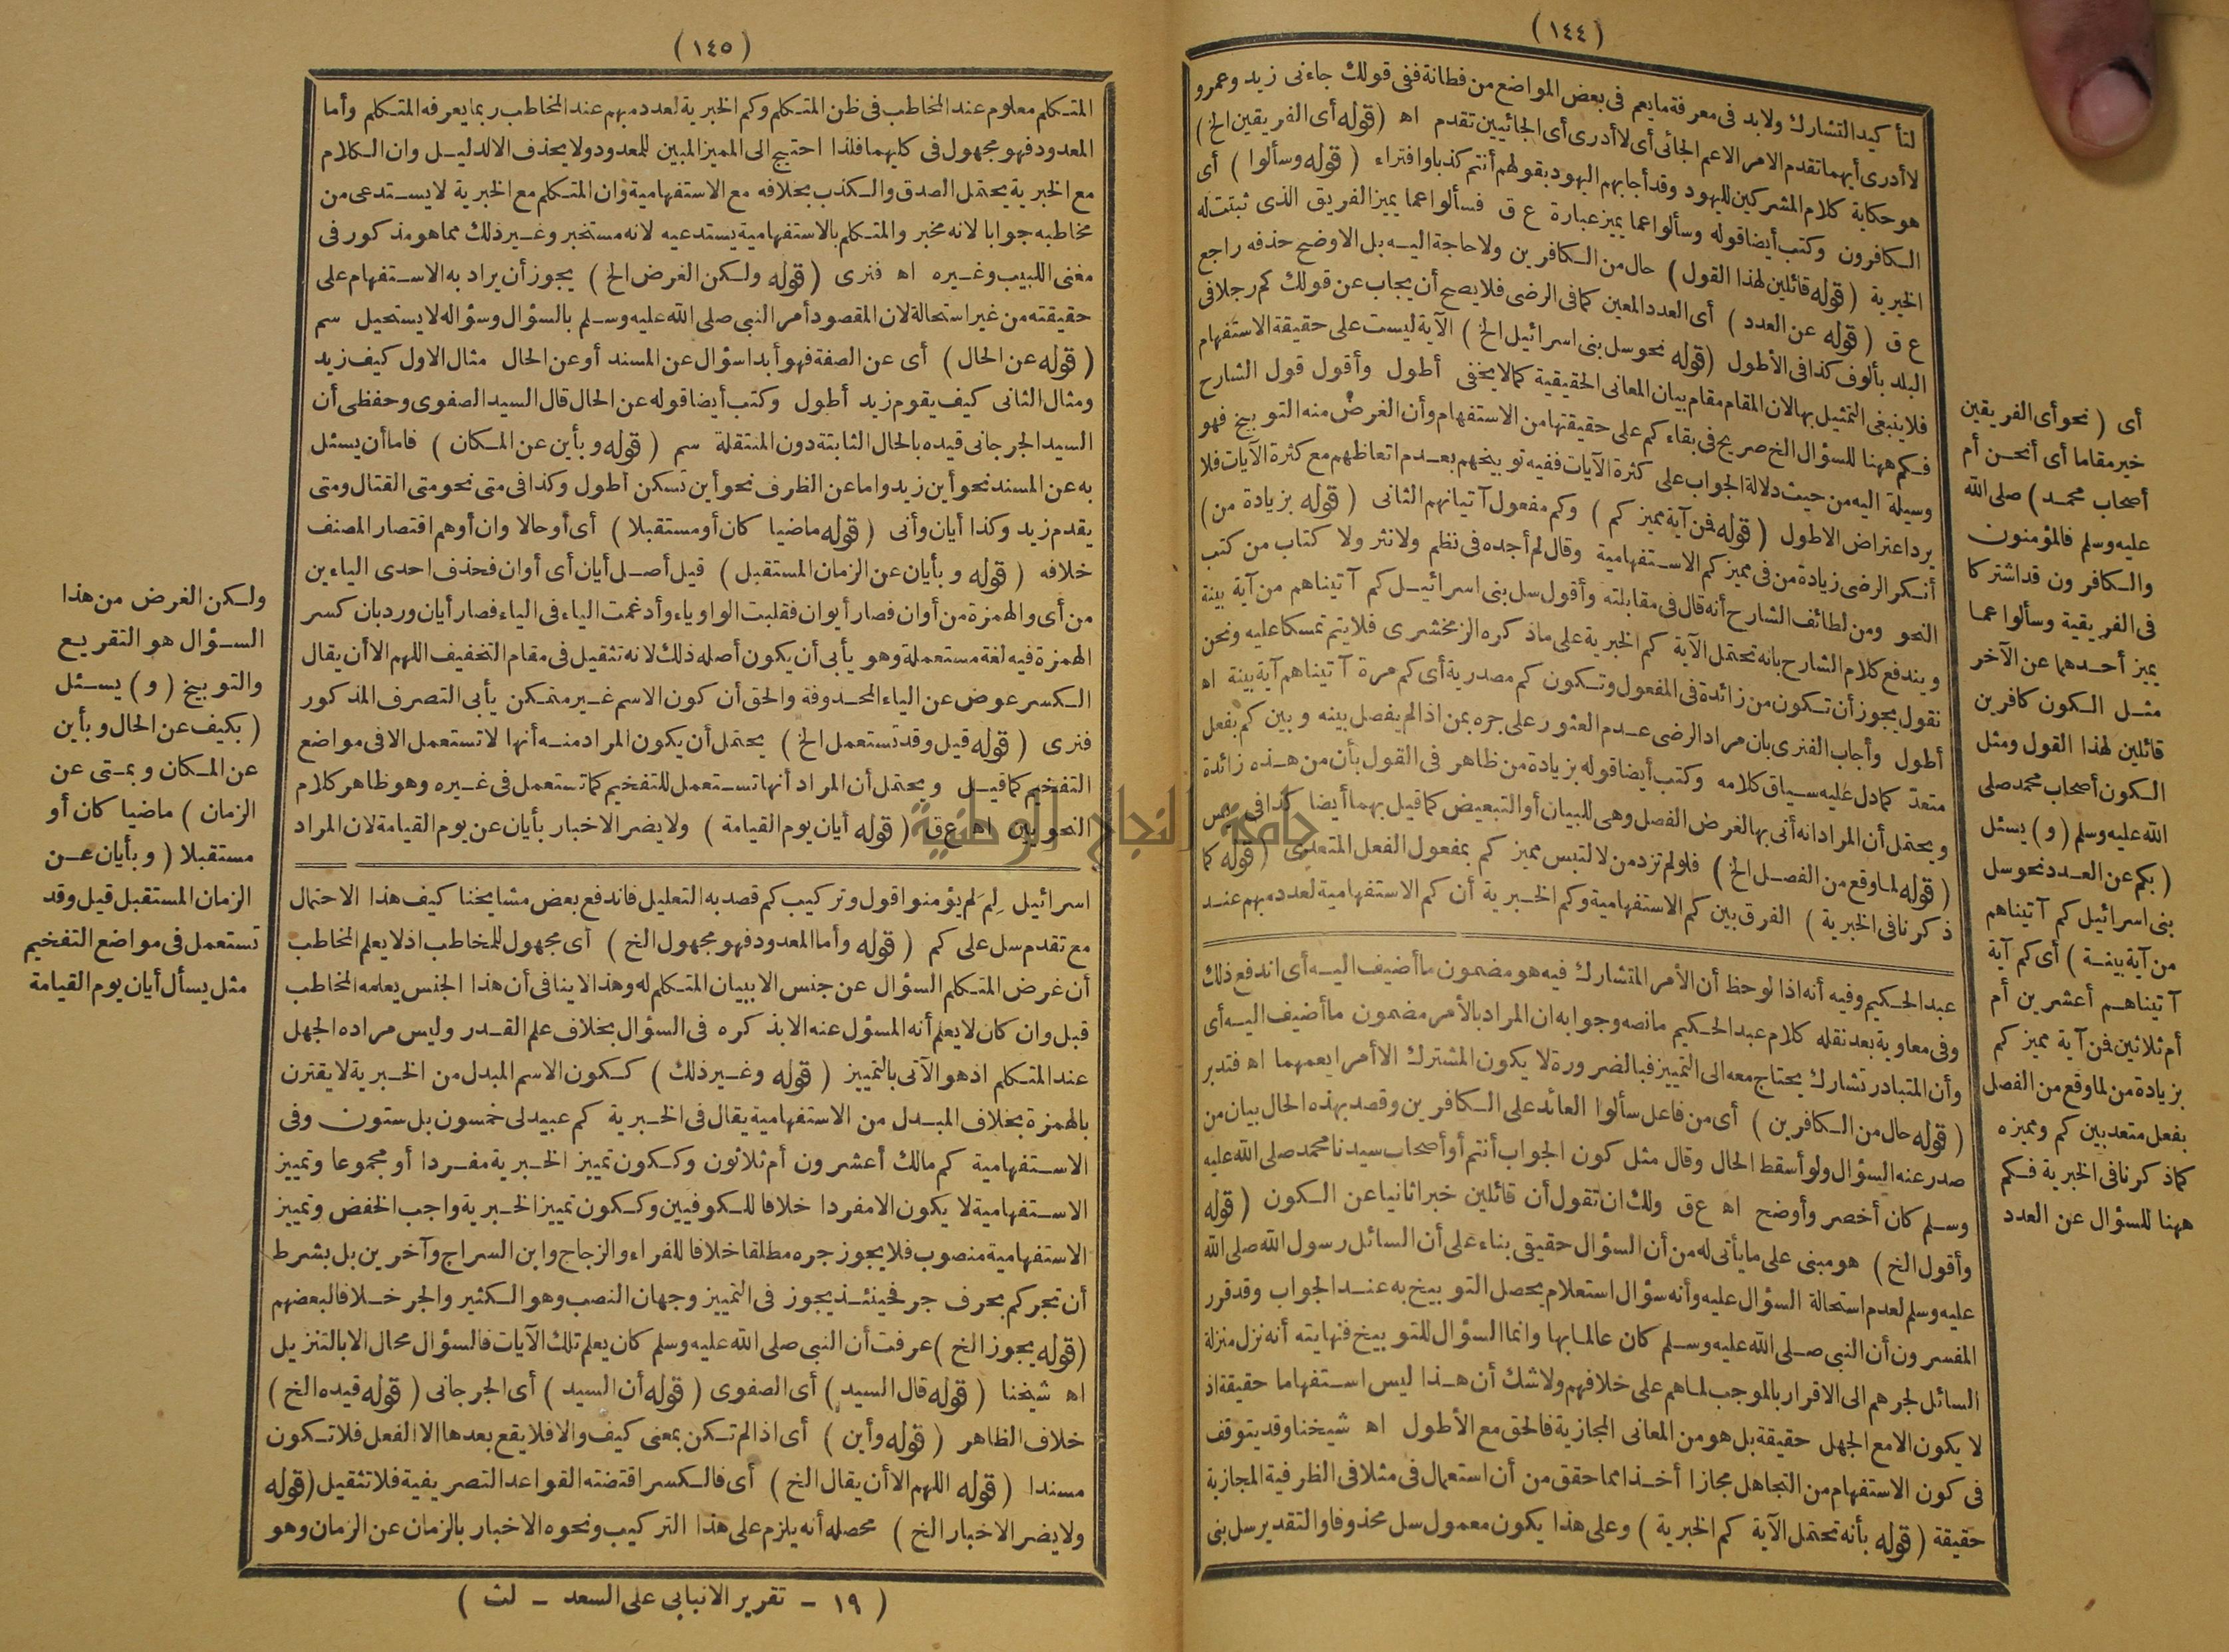 (١٤٤)
لتأكيد التشارك ولابد فى معرفة مايعم فى بعض المواضع من فطانة ففى قولك جاءنى زيد وعمرو
لا أدرى أيهما تقدم الامر الاعم الجائى أى لا أدرى أى الجائيين تقدم اه (قوله أى الفريقين الخ)
هو حكاية كلام المشركين لليهود وقد أجابهم اليهود بقولهم أنتم كذبا وافتراء (قوله وسألوا) أى
الكافرون وكتب أيضا قوله وسألوا عما يميز عبارة ع ق فسألوا عما يميز الفريق الذى ثبتت له
الخيرية (قوله قائلين لهذا القول) حال من الكافرين ولا حاجة اليه بل الاوضح حذفه راجع
ع ق (قوله عن العدد) أى العدد المعين كما فى الرضى فلا يصح أن يجاب عن قولك كم رجلا فى
البلد بألوف كذا فى الأطول (قوله نحو سل بنى اسرائيل الخ) الآية ليست على حقيقة الاستفهام
فلا ينبغى التمثيل بها لان المقام مقام بيان المعانى الحقيقية كما لا يخفى أطول وأقول قول الشارح
فكم ههنا للسؤال الخ صريح فى بقاء كم على حقيقتها من الاستفهام وأن الغرض منه التوبيخ فهو
وسيلة اليه من حيث دلالة الجواب على كثرة الآيات ففيه توبيخهم بعدم اتعاظهم مع كثرة الآيات فلا
يرد اعتراض الاطول (قوله فمن آية مميز كم) وكم مفعول آتيناهم الثانى (قوله بزيادة من)
أنكر الرضى زيادة من فى مميز كم الاستفهامية وقال لم أجده فى نظم ولا نثر ولا كتاب من كتب
النحو ومن لطائف الشارح أنه قال فى مقابلته وأقول سل بنى اسرائيل كم آتيناهم من آية بينة
ويندفع كلام الشارح بانه تحتمل الآية كم الخبرية على ما ذكره الزمخشرى فلا يتم تمسكا عليه ونحن
نقول يجوز أن تكون من زائدة فى المفعول وتكون كم مصدرية أى كم مرة آتيناهم آية بينة اه
أطول وأجاب الفنرى بان مراد الرضى عدم العثور على جره بمن اذا لم يفصل بينه وبين كم بفعل
متعد كما دل عليه سياق كلامه وكتب أيضا قوله بزيادة من ظاهر فى القول بأن من هذه زائدة
ويحتمل أن المراد انه أتى بها لغرض الفصل وهى للبيان أو التبعيض كما قيل بهما أيضا كذا فى يس
(قوله لما وقع من الفصل الخ) فلو لم تزد من لالتبس مميز كم بمفعول الفعل المتعدى (قوله كما
ذكرنا فى الخبرية) الفرق بين كم الاستفهامية وكم الخبرية أن كم الاستفهامية لعدد مبهم عند
عبد الحكيم وفيه أنه اذا لوحظ أن الأمر المتشارك فيه هو مضمون ما أضيف اليه أى اندفع ذلك
وفى معاوية بعد نقله كلام عبد الحكيم ما نصه وجوابه ان المراد بالأمر مضمون ما أضيف اليه أى
وأن المتبادر تشارك يحتاج معه الى التمييز فبالضرورة لا يكون المشترك الا أمرا بعمهما اه فتدبر
(قوله حال من الكافرين) أى من فاعل سألوا العائد على الكافرين وقصد بهذه الحال بيان من
صدر عنه السؤال ولو أسقط الحال وقال مثل كون الجواب أنتم أو أصحاب سيدنا محمد صلى الله عليه
وسلم كان أخصر وأوضح اه ع ق ولك ان تقول أن قائلين خبرا ثانيا عن الكون (قوله
وأقول الخ) هو مبنى على ما يأتى له من أن السؤال حقيقى بناء على أن السائل رسول الله صلى الله
عليه وسلم لعدم استحالة السؤال عليه وأنه سؤال استعلام يحصل التوبيخ به عند الجواب وقد قرر
المفسرون أن النبى صلى الله عليه وسلم كان عالما بها وانما السؤال للتوبيخ فنهايته أنه نزل منزلة
السائل لجرهم الى الاقرار بالموجب لما هم على خلافهم ولا شك أن هذا ليس استفهاما حقيقة اذ
لا يكون الا مع الجهل حقيقة بل هو من المعانى المجازية فالحق مع الأطول اه شيخنا وقد يتوقف
فى كون الاستفهام من التجاهل مجازا أخذا مما حقق من أن استعمال فى مثلا فى الظرفية المجازية
حقيقة (قوله بأنه تحتمل الآية كم الخبرية) وعلى هذا يكون معمول سل محذوفا والتقدير سل بنى
أى (نحو أى الفريقين
خير مقاما أى أنحن أم
أصحاب محمد) صلى الله
عليه وسلم فالمؤمنون
والكافرون قد اشتركا
فى الفريقية وسألوا عما
يميز أحدهما عن الآخر
مثل الكون كافرين
قائلين لهذا القول ومثل
الكون أصحاب محمد صلى
الله عليه وسلم (و) يسئل
(بكم عن العدد نحو سل
بنى اسرائيل كم آتيناهم
من آية بينة) أى كم آية
آتيناهم أعشرين أم
أم ثلاثين فمن آية مميز كم
بزيادة من لما وقع من الفصل
بفعل متعد بين كم ومميزه
كما ذكرنا فى الخبرية فكم
ههنا للسؤال عن العدد
(١٤٥)
المتكلم معلوم عند المخاطب فى ظن المتكلم وكم الخبرية لعدد مبهم عند المخاطب ربما يعرفه المتكلم وأما
المعدود فهو مجهول فى كليهما فلذا احتيج الى المميز المبين للمعدود ولا يحذف الا لدليل وان الكلام
مع الخبرية يحتمل الصدق والكذب بخلافه مع الاستفهامية وان المتكلم مع الخبرية لا يستدعى من
مخاطبه جوابا لانه مخبر والمتكلم بالاستفهامية يستدعيه لانه مستخبر وغير ذلك مما هو مذكور فى
مغنى اللبيب وغيره اه فنرى (قوله ولكن الغرض الخ) يجوز أن يراد به الاستفهام على
حقيقته من غير استحالة لان المقصود أمر النبى صلى الله عليه وسلم بالسؤال وسؤاله لا يستحيل سم
(قوله عن الحال) أى عن الصفة فهو أبدا سؤال عن المسند أو عن الحال مثال الاول كيف زيد
ومثال الثانى كيف يقوم زيد أطول وكتب أيضا قوله عن الحال قال السيد الصفوى وحفظى أن
السيد الجرجانى قيده بالحال الثابتة دون المنتقلة سم (قوله وبأين عن المكان) فاما أن يسئل
به عن المسند نحو أين زيد واما عن الظرف نحو أين تسكن أطول وكذا فى متى نحو متى القتال ومتى
يقدم زيد وكذا أيان وأنى (قوله ماضيا كان أو مستقبلا) أى أو حالا وان أوهم اقتصار المصنف
خلافه (قوله وبأيان عن الزمان المستقبل) قيل أصل أيان أى أوان فحذف احدى الياءين
من أى والهمزة من أوان فصار أيوان فقلبت الواو ياء وأدغمت الياء فى الياء فصار أيان ورد بان كسر
الهمزة فيه لغة مستعملة وهو يأبى أن يكون أصله ذلك لانه تثقيل فى مقام التخفيف اللهم الا أن يقال
الكسر عوض عن الياء المحذوفة والحق أن كون الاسم غير متمكن يأبى التصرف المذكور
فنرى (قوله قيل وقد تستعمل الخ) يحتمل أن يكون المراد منه أنها لا تستعمل الا فى مواضع
التفخيم كما قيل ويحتمل أن المراد أنها تستعمل للتفخيم كما تستعمل فى غيره وهو ظاهر كلام
النحويين اه ع ق (قوله أيان يوم القيامة) ولا يضر الاخبار بأيان عن يوم القيامة لان المراد
اسرائيل لِمَ لم يؤمنوا قول وتركيب كم قصد به التعليل فاندفع بعض مشايخنا كيف هذا الاحتمال
مع تقدم سل على كم (قوله وأما المعدود فهو مجهول الخ) أى مجهول للمخاطب اذ لا يعلم المخاطب
أن غرض المتكلم السؤال عن جنس الا ببيان المتكلم له وهذا لا ينافى أن هذا الجنس يعلمه المخاطب
قبل وان كان لا يعلم أنه المسؤل عنه الا بذكره فى السؤال بخلاف علم القدر وليس مراده الجهل
عند المتكلم اذ هو الآتى بالتمييز (قوله وغير ذلك) ككون الاسم المبدل من الخبرية لا يقترن
بالهمزة بخلاف المبدل من الاستفهامية يقال فى الخبرية كم عبيد لى خمسون بل ستون وفى
الاستفهامية كم مالك أعشرون أم ثلاثون وككون تمييز الخبرية مفردا أو مجموعا وتمييز
الاستفهامية لا يكون الا مفردا خلافا للكوفيين وككون تمييز الخبرية واجب الخفض وتمييز
الاستفهامية منصوب فلا يجوز جره مطلقا خلافا للفراء والزجاج وابن السراج وآخرين بل بشرط
أن تجر كم بحرف جر فحينئذ يجوز فى التمييز وجهان النصب وهو الكثير والجر خلافا لبعضهم
(قوله يجوز الخ) عرفت أن النبى صلى الله عليه وسلم كان يعلم تلك الآيات فالسؤال محال الا بالتنزيل
اه شيخنا (قوله قال السيد) أى الصفوى (قوله أن السيد) أى الجرجانى (قوله قيده الخ)
خلاف الظاهر (قوله وأين) أى اذا لم تكن بمعنى كيف والا فلا يقع بعدها الا الفعل فلا تكون
مسندا (قوله اللهم الا أن يقال الخ) أى فالكسر اقتضته القواعد التصريفية فلا تثقيل (قوله
ولا يضر الاخبار الخ) محصله أنه يلزم على هذا التركيب ونحوه الاخبار بالزمان عن الزمان وهو
ولكن الغرض من هذا
السؤال هو التقريع
والتوبيخ (و) يسئل
(بكيف عن الحال وبأين
عن المكان وبمتى عن
الزمان) ماضيا كان أو
مستقبلا (وبأيان عن
الزمان المستقبل قيل وقد
تستعمل فى مواضع التفخيم
مثل يسأل أيان يوم القيامة
(١٩ - تقرير الانبابى على السعد - لث)
جامعة النجاح الوطنية